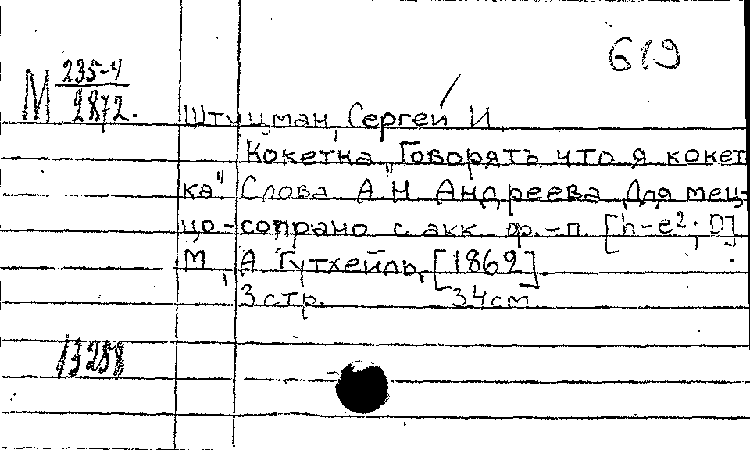 619
М 235-4
2872.
Штуцман, Сергей И
Кокетка „Говорятъ что я кокет
ка" Слова А Н Андреева Для мец-
цо-сопрано с акк ф.-п. [h-e²; D].
М, А Гутхейль, [1869].
3 стр. 34 см
13288